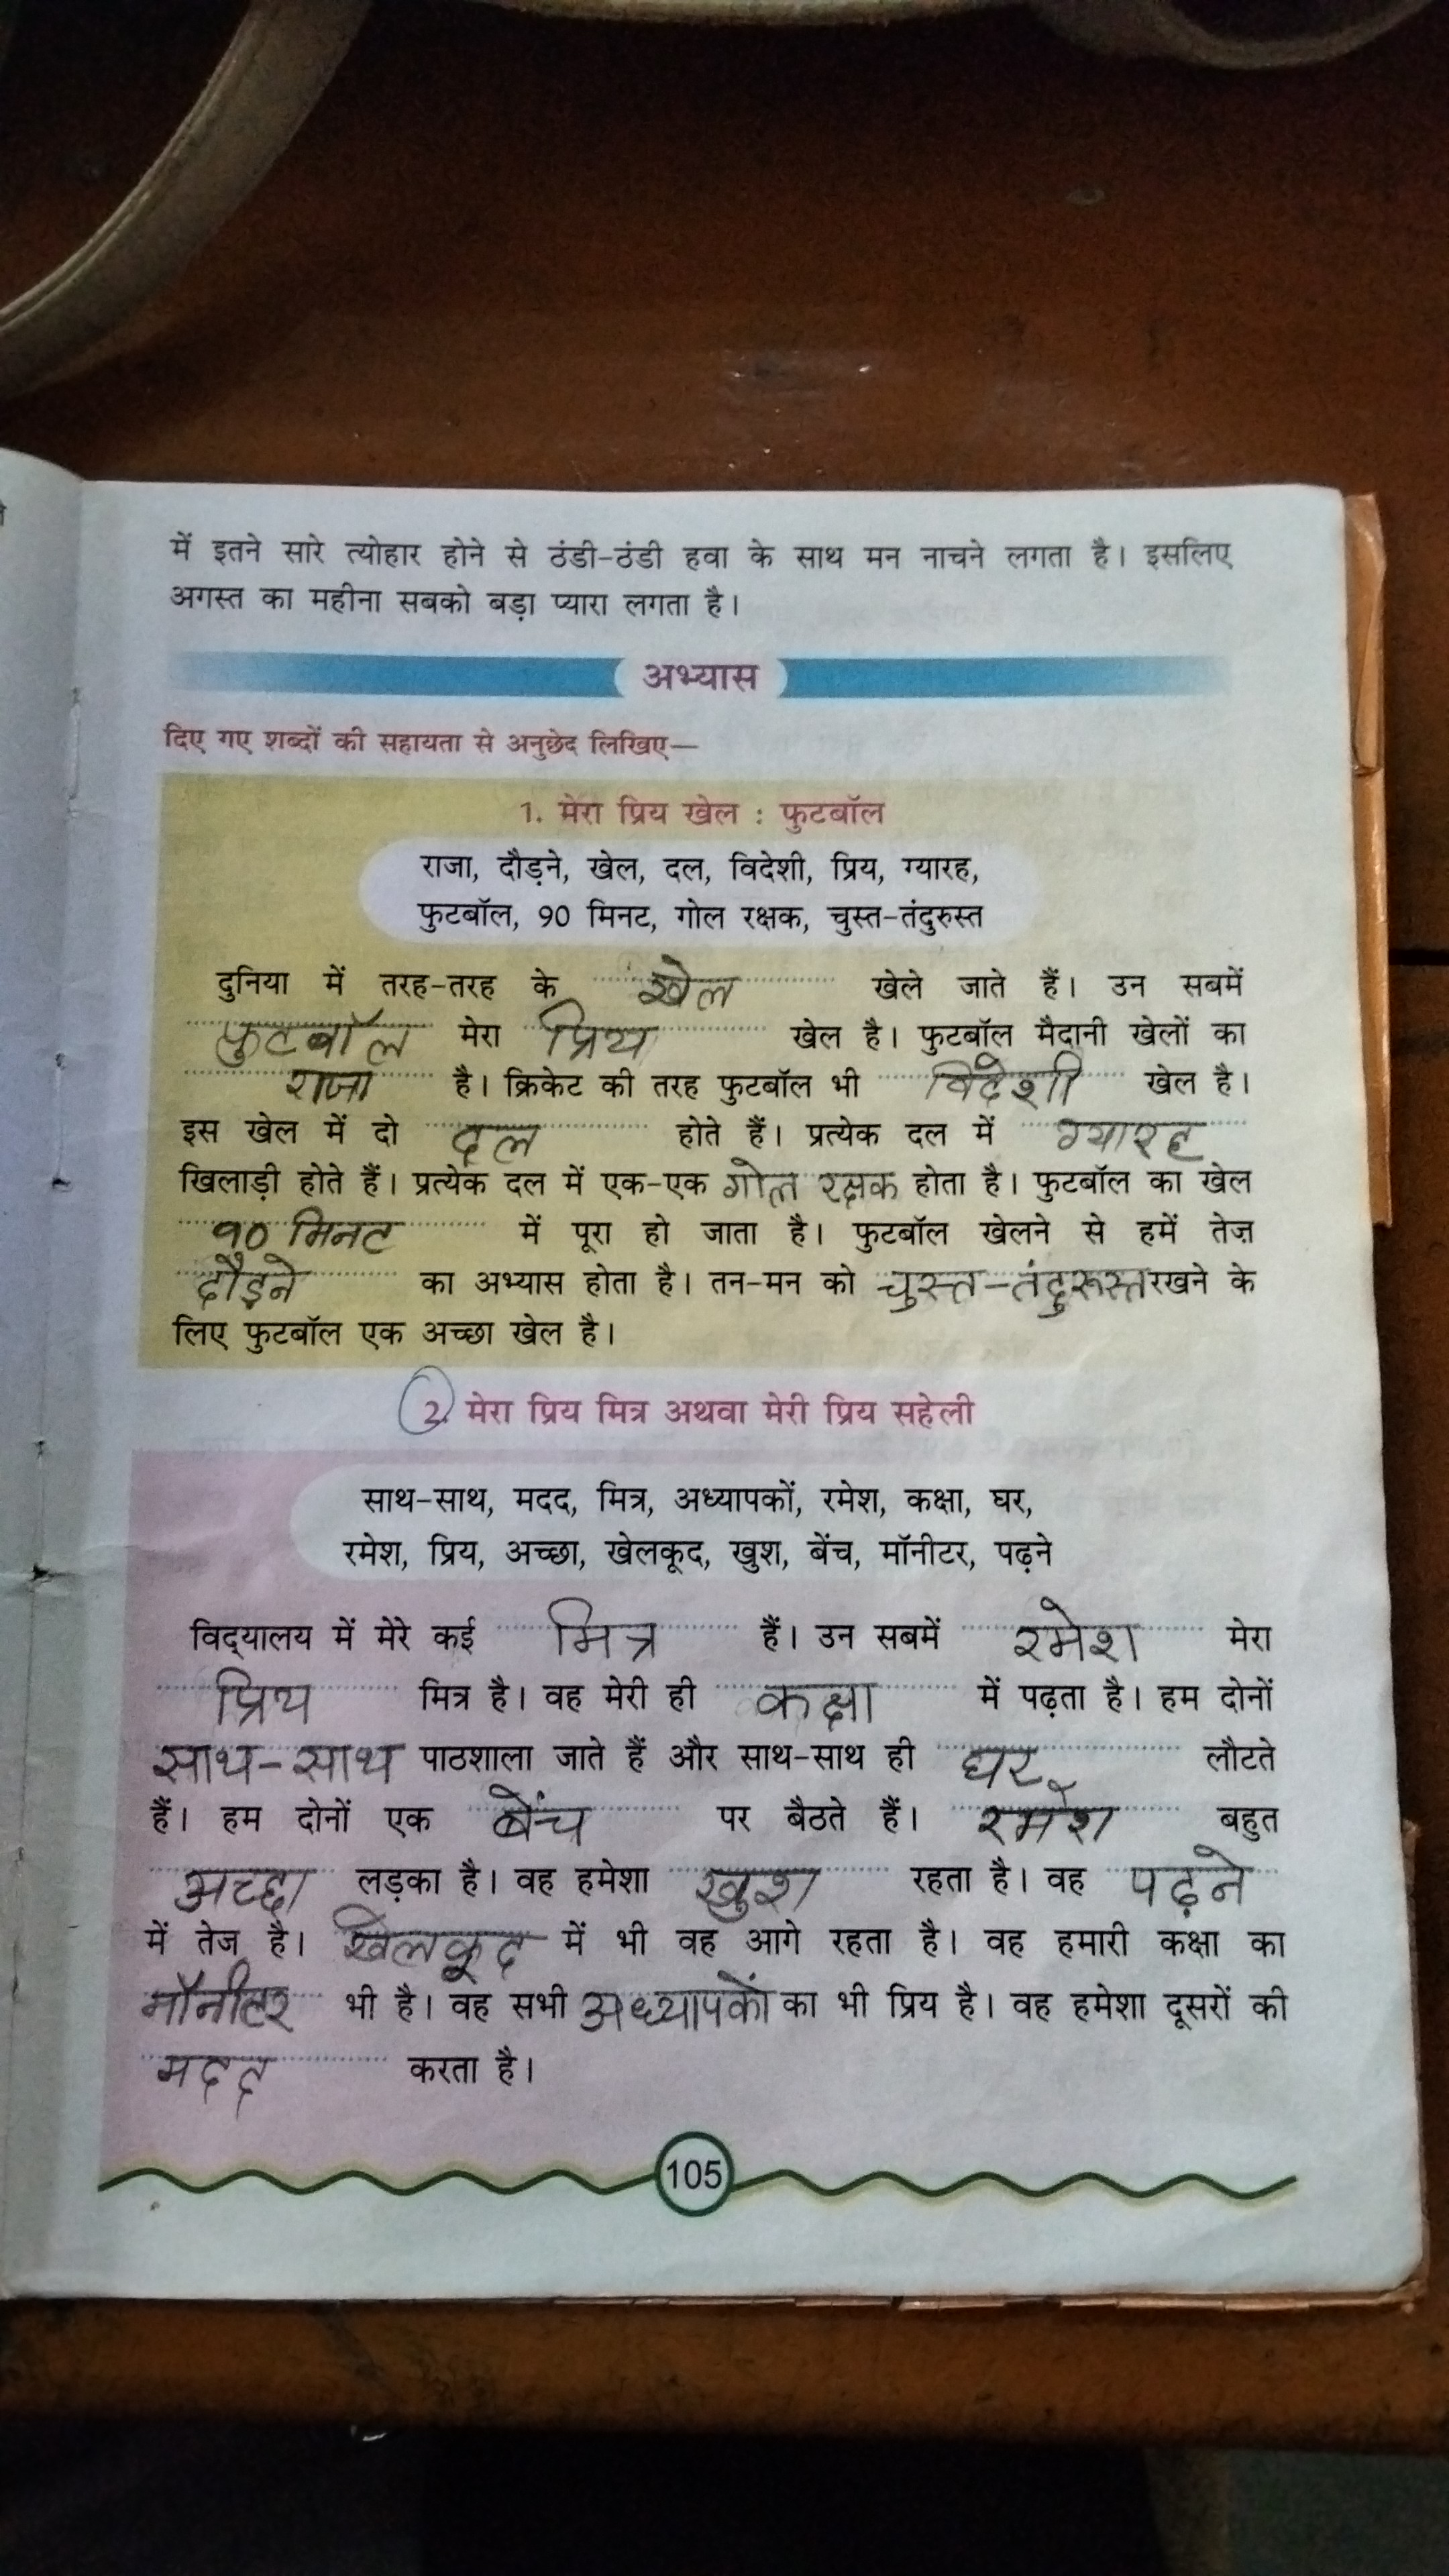 में इतने सारे त्योहार होने से ठंडी-ठंडी हवा के साथ मन नाचने लगता है। इसलिए
अगस्त का महीना सबको बड़ा प्यारा लगता है।
अभ्यास
दिए गए शब्दों की सहायता से अनुछेद लिखिए—
1. मेरा प्रिय खेल : फुटबॉल
राजा, दौड़ने, खेल, दल, विदेशी, प्रिय, ग्यारह,
फुटबॉल, 90 मिनट, गोल रक्षक, चुस्त-तंदुरुस्त
दुनिया में तरह-तरह के खेल खेले जाते हैं। उन सबमें
फुटबॉल मेरा प्रिय खेल है। फुटबॉल मैदानी खेलों का
राजा है। क्रिकेट की तरह फुटबॉल भी विदेशी खेल है।
इस खेल में दो दल होते हैं। प्रत्येक दल में ग्यारह
खिलाड़ी होते हैं। प्रत्येक दल में एक-एक गोल रक्षक होता है। फुटबॉल का खेल
90 मिनट में पूरा हो जाता है। फुटबॉल खेलने से हमें तेज़
दौड़ने का अभ्यास होता है। तन-मन को चुस्त-तंदुरूस्त रखने के
लिए फुटबॉल एक अच्छा खेल है।
2. मेरा प्रिय मित्र अथवा मेरी प्रिय सहेली
साथ-साथ, मदद, मित्र, अध्यापकों, रमेश, कक्षा, घर,
रमेश, प्रिय, अच्छा, खेलकूद, खुश, बेंच, मॉनीटर, पढ़ने
विद्‌यालय में मेरे कई मित्र हैं। उन सबमें रमेश मेरा
प्रिय मित्र है। वह मेरी ही कक्षा में पढ़ता है। हम दोनों
साथ-साथ पाठशाला जाते हैं और साथ-साथ ही घर लौटते
हैं। हम दोनों एक बेंच पर बैठते हैं। रमेश बहुत
अच्छा लड़का है। वह हमेशा खुश रहता है। वह पढ़ने
में तेज है। खिलकूद में भी वह आगे रहता है। वह हमारी कक्षा का
मॉनीटर भी है। वह सभी अध्यापकों का भी प्रिय है। वह हमेशा दूसरों की
मदद करता है।
105